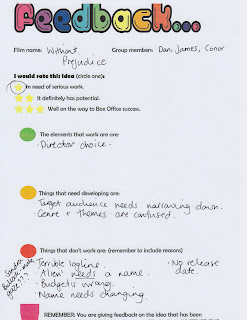 Feedback...
Film name: Without Prejudice
Group members: Dan, James, Conor
I would rate this idea (circle one):
In need of serious work.
It definitely has potential.
Well on the way to Box Office success.
The elements that work are are:
· Director choice.
Things that need developing are:
· Target audience needs narrowing down.
· Genre + Themes are confused.
Things that don't work are: (remember to include reasons)
· Terrible logline.
· 'Alien' needs a name.
· Budget is wrong.
· Name needs changing.
· No release date.
Sandra Bullock
REMEMBER: You are giving feedback on the idea that has been